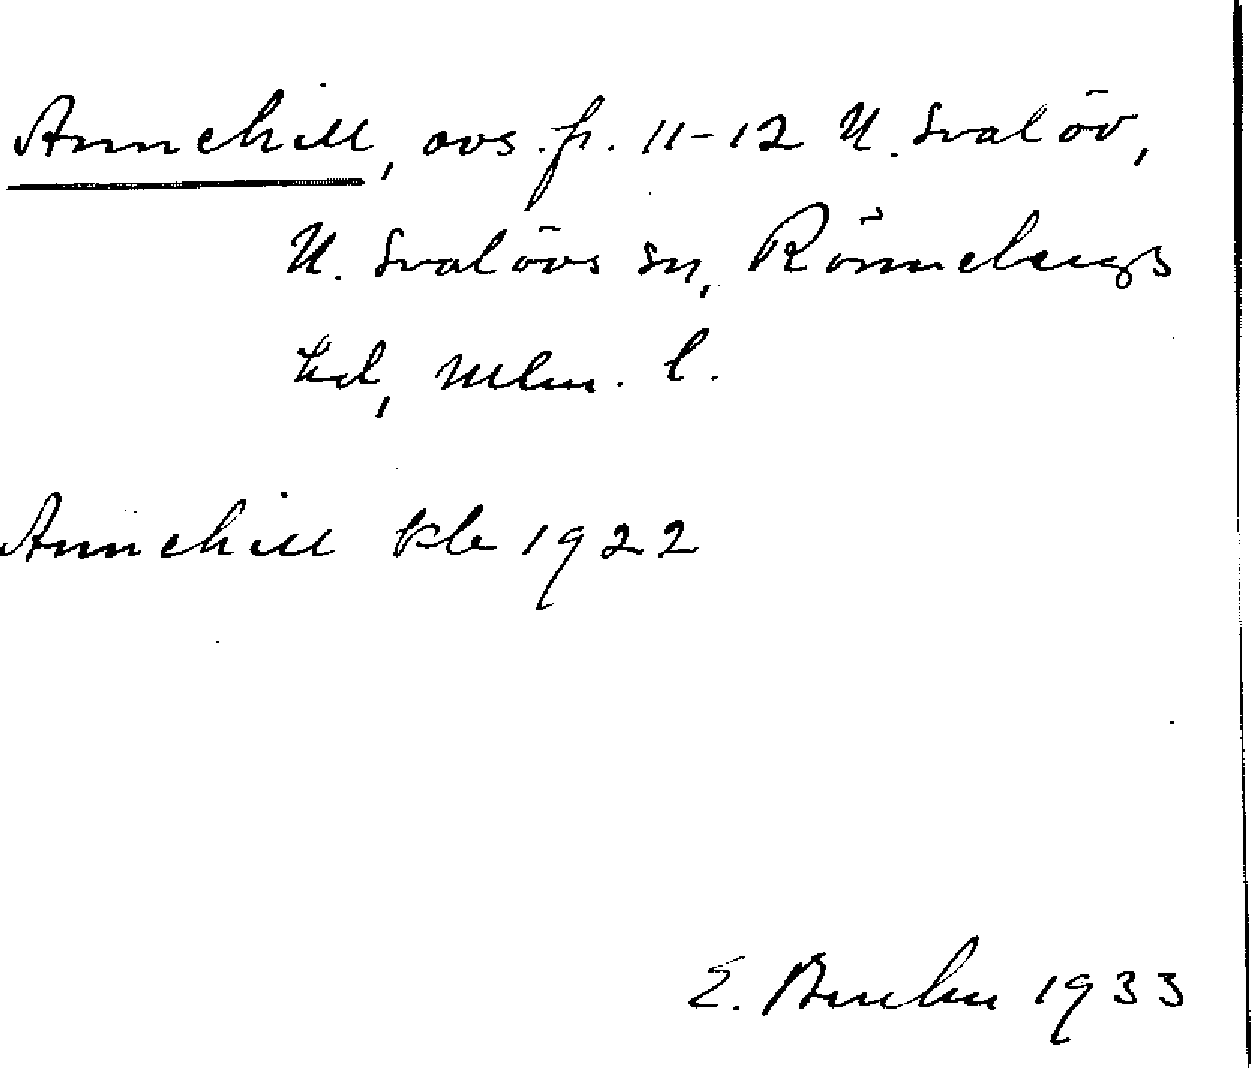 Annehill, avs. fr. 11-12 N. Svalöv,
N. Svalövs sn, Rönnebergs
hd, Mlm. l.
Annehill kb 1922
E. 1933